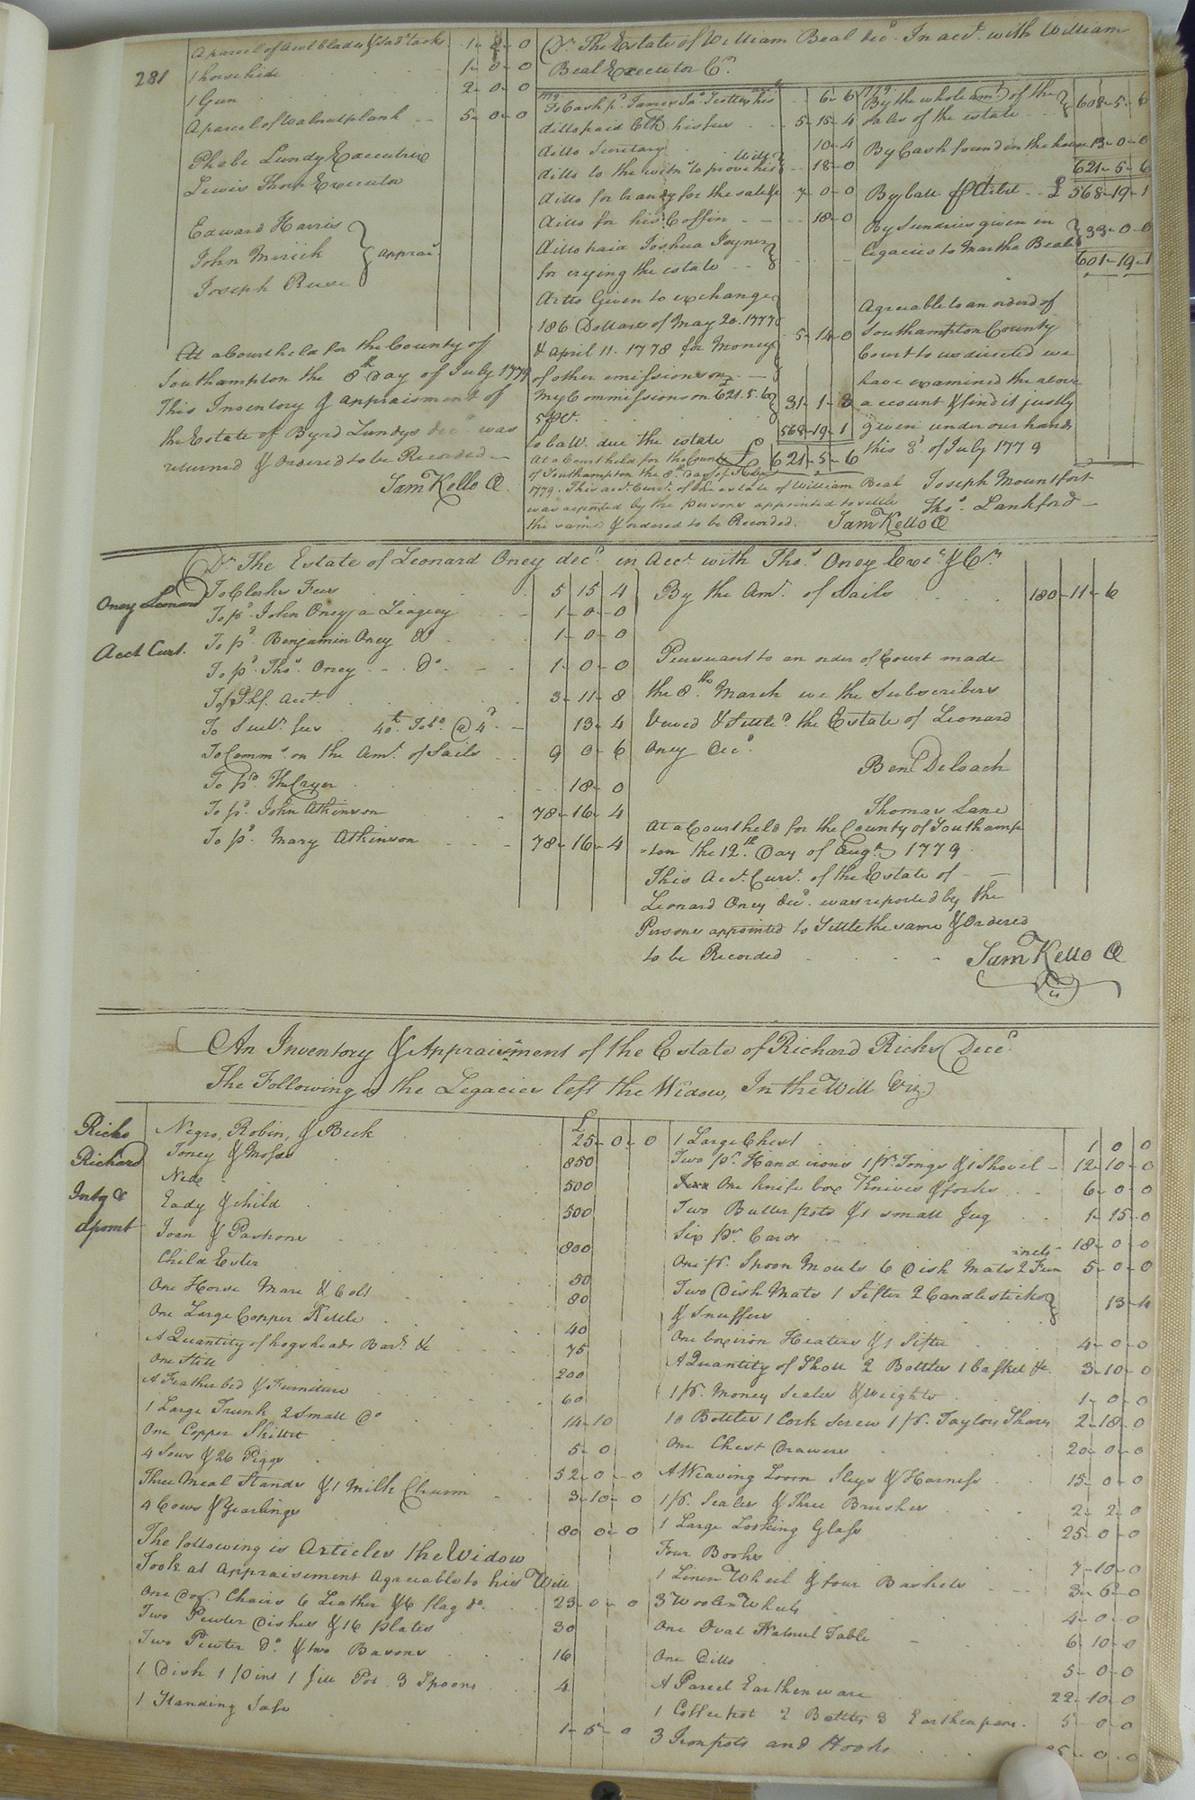 281
A parcel of awl blades & Sad. tacks 1- 2- 0
1 horse hide 1- 0- 0
1 Gun 2- 0- 0
A parcel of walnut plank 5- 0- 0
Phebe Lundy Executrix
Lewis Thorp Executor
Edward Harris
John Mirick } apprais.
Joseph Reese
At a Court held for the County of
Southampton the 8th day of July 1779
This Inventory & appraisment of
the Estate of Byrd Lundys decd. was
returned & Ordered to be Recorded
Saml Kello Cl
Dr. The Estate of William Beal decd. In acct. with William
Beal Executor Cr.
To Cash pd. James Jno.
6- 6
ditto paid Clk his fees 5- 15- 4
ditto Secretary 10- 4
ditto to the witns to prove his Will 18- 0
ditto for brandy for the sale 7- 0- 0
ditto for his Coffin 18- 0
ditto paid Joshua Joyner
for crying the estate
ditto Given to exchange
186 Dollars of May 20. 1777
& April 11. 1778 for Money
of other emissions 5- 14- 0
My Commissions on 621. 5. 6
5 pCt. 31- 1- 8
568- 19- 1
to ball. due the estate £ 621- 5- 6
At a Court held for the County
of Southampton the 8th day of July
1779. This acct. Curt. of the estate of William Beal
was reported by the persons appointed to settle
the same & ordered to be Recorded. Saml Kello Cl
By the whole amt. of the
sales of the estate 608- 5- 6
By Cash found in the house 13- 0- 0
621- 5- 6
By ball £ 568- 19- 1
By Sundries given in
legacies to Martha Beal 33- 0- 0
601- 19- 1
Agreeable to an order of
Southampton County
Court to us directed we
have examined the above
account & find it justly
given under our hands
this 8th of July 1779
Joseph Mountfort
Thos. Lankford
Dr. The Estate of Leonard Oney decd. in Acct. with Thos. Oney Exer. & Cr.
Oney Leonard
Acct Curt.
To Clerks Fees 5 15 4
To pd. John Oney a Leagcy 1- 0- 0
To pd. Benjamin Oney Do 1- 0- 0
To pd. Thos. Oney Do. 1- 0- 0
3- 11- 8
40 lb. Tobo. @ 4d 13- 4
To Comms. on the Amt. of Sails 9 0- 6
To pd. The Cryer 18- 0
To pd. John Atkinson 78- 16- 4
To pd. Mary Atkinson 78- 16- 4
By the Amt. of Sails 180- 11- 6
Persuant to an order of Court made
the 8th March we the Subscribers
Vewed & Settled. the Estate of Leonard
Oney Decd.
Benj. Deloach
Thomas Lane
At a Court held for the County of Southamp
-ton the 12th Day of Augt. 1779
This Acct. Curt. of the Estate of
Leonard Oney decd. was reported by the
Persons appointed to Settle the same & Ordered
to be Recorded
Saml Kello Cl
An Inventory & Appraisment of the Estate of Richard Ricks Decd.
The Following is the Legacies left the Widow, In the Will Viz
Ricks
Richard
Invty &
apsmt
Negro, Robin, & Beck £ 25- 0- 0
Toney & Moses 850
Nede 500
Eady & Child 500
Joan & Pashone 800
Child Ester 50
One Horse Mare & Colt 80
One Large Copper Kettle 40
A Quantity of hogsheads Barl. &c 75
One Still 200
A Feather bed & Furniture 60
1 Large Trunk 2 Small Do 14- 10
One Copper Skillet 5- 0
4 Sows & 26 Piggs 52- 0- 0
Three Meal Stands & 1 Milk Churn 3- 10- 0
4 Cows & Yearlings 80 0- 0
The following is Articles the Widow
Took at Appraisement Agreeable to his Will
One Doz. Chairs 6 Leather & 6 flag do. 23- 0- 0
Two Pewter Dishes & 16 plates 30
Two Pewter Do. & two Basons 16
1 Dish 1 pint 1 jill Pot 3 Spoons 4
1 Standing Safe 1- 5- 0
1 Large Chest 1 0 0
Two pr. Hand irons 1 pr. Tongs & 1 Shovel 12- 10- 0
One knife box Knives & forks 6- 0- 0
Two Butter pots & 1 small Jug 1- 15- 0
Six pr. Cards 18- 0- 0
One pr. Spoon Moulds 6 Dish Mats 2 Funnels 5- 0- 0
Two Dish Mats 1 Sifter 2 Candlesticks
& Snuffers 13- 4
One box iron Heaters & 1 Sifter 4- 0- 0
A Quantity of Thread 2 Bottles 1 Casket &c. 3- 10- 0
1 pr. Money Scales & Weights 1- 0- 0
10 Bottles 1 Cork Screw 1 pr. Taylors Shears 2- 18- 0
One Chest Drawers 20- 0- 0
A Weaving Loom Slays & Harness 15- 0- 0
1 pr. Scales & Three Brushes 2- 2- 0
1 Large Looking Glass 25- 0- 0
Four Books 7- 10- 0
1 Linen Wheel & four Baskets 3- 6- 0
3 Woolen Wheels 4- 0- 0
One Oval Walnut Table 6 10- 0
One Ditto 5- 0- 0
A Parcel Earthen ware 22- 10- 0
1 Coffee pot 2 Bottles 3 Earthen pans 5 0- 0
3 Iron pots and Hooks 25- 0- 0